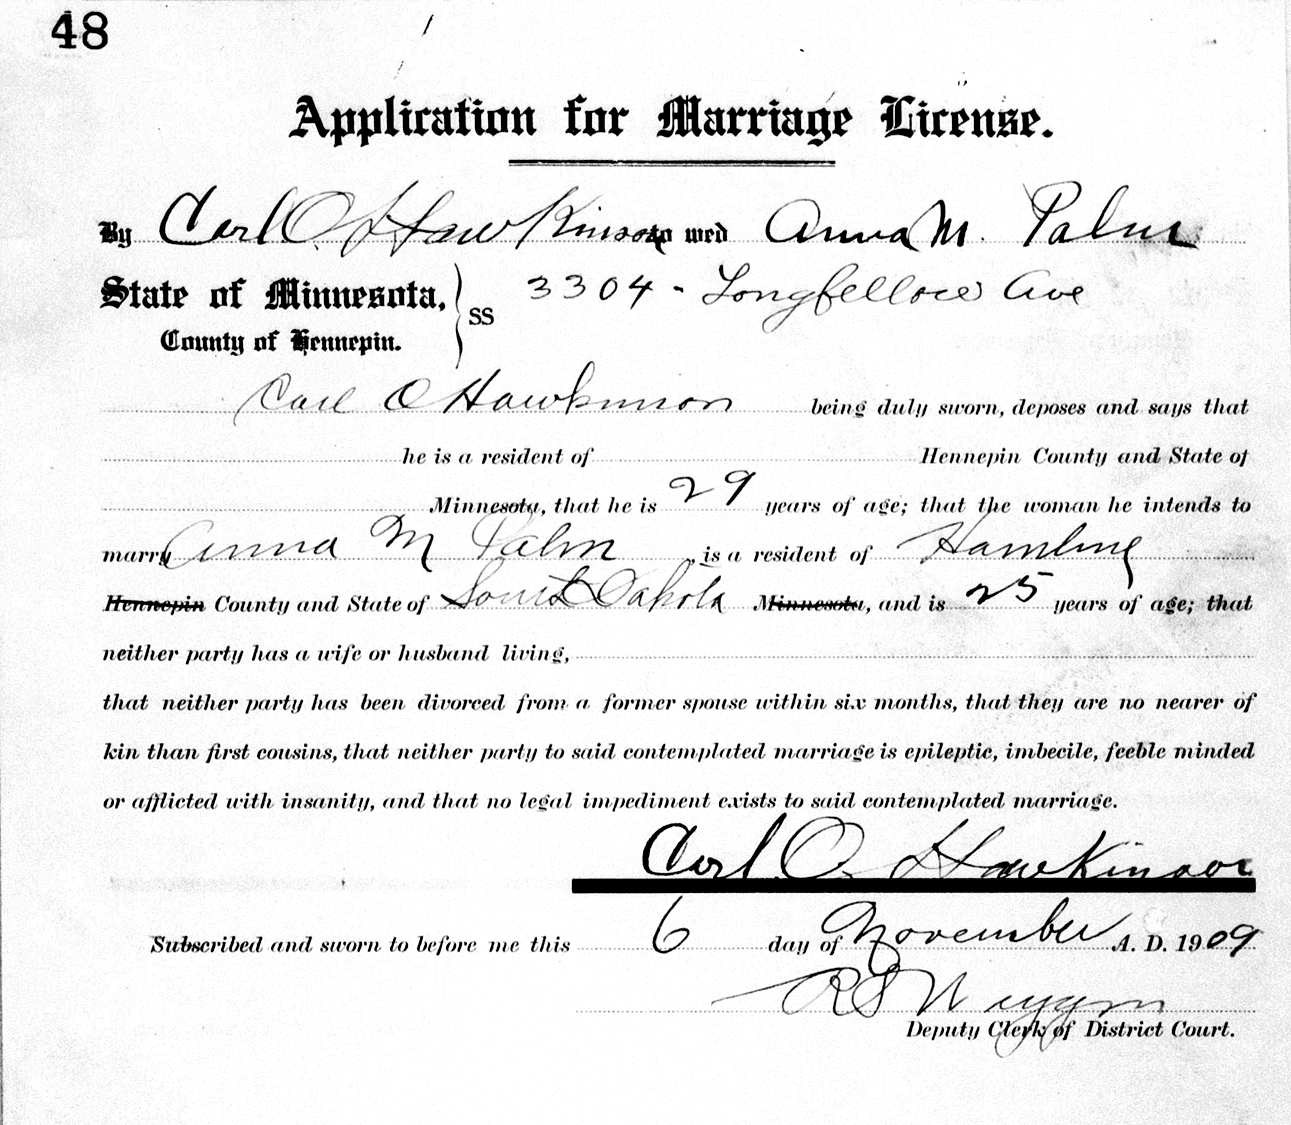 48
Application for Marriage License.
By Carl O. Hawkinson to wed Anna M. Palm
State of Minnesota, } ss 3304 - Longfellow Ave
County of Hennepin.
Carl O Hawkinson being duly sworn, deposes and says that
he is a resident of Hennepin County and State of
Minnesota, that he is 29 years of age; that the woman he intends to
marry Anna M Palm, is a resident of Hamline
Hennepin County and State of South Dakota Minnesota, and is 25 years of age; that
neither party has a wife or husband living,
that neither party has been divorced from a former spouse within six months, that they are no nearer of
kin than first cousins, that neither party to said contemplated marriage is epileptic, imbecile, feeble minded
or afflicted with insanity, and that no legal impediment exists to said contemplated marriage.
Carl O. Hawkinson
Subscribed and sworn to before me this 6 day of November A. D. 1909
Deputy Clerk of District Court.